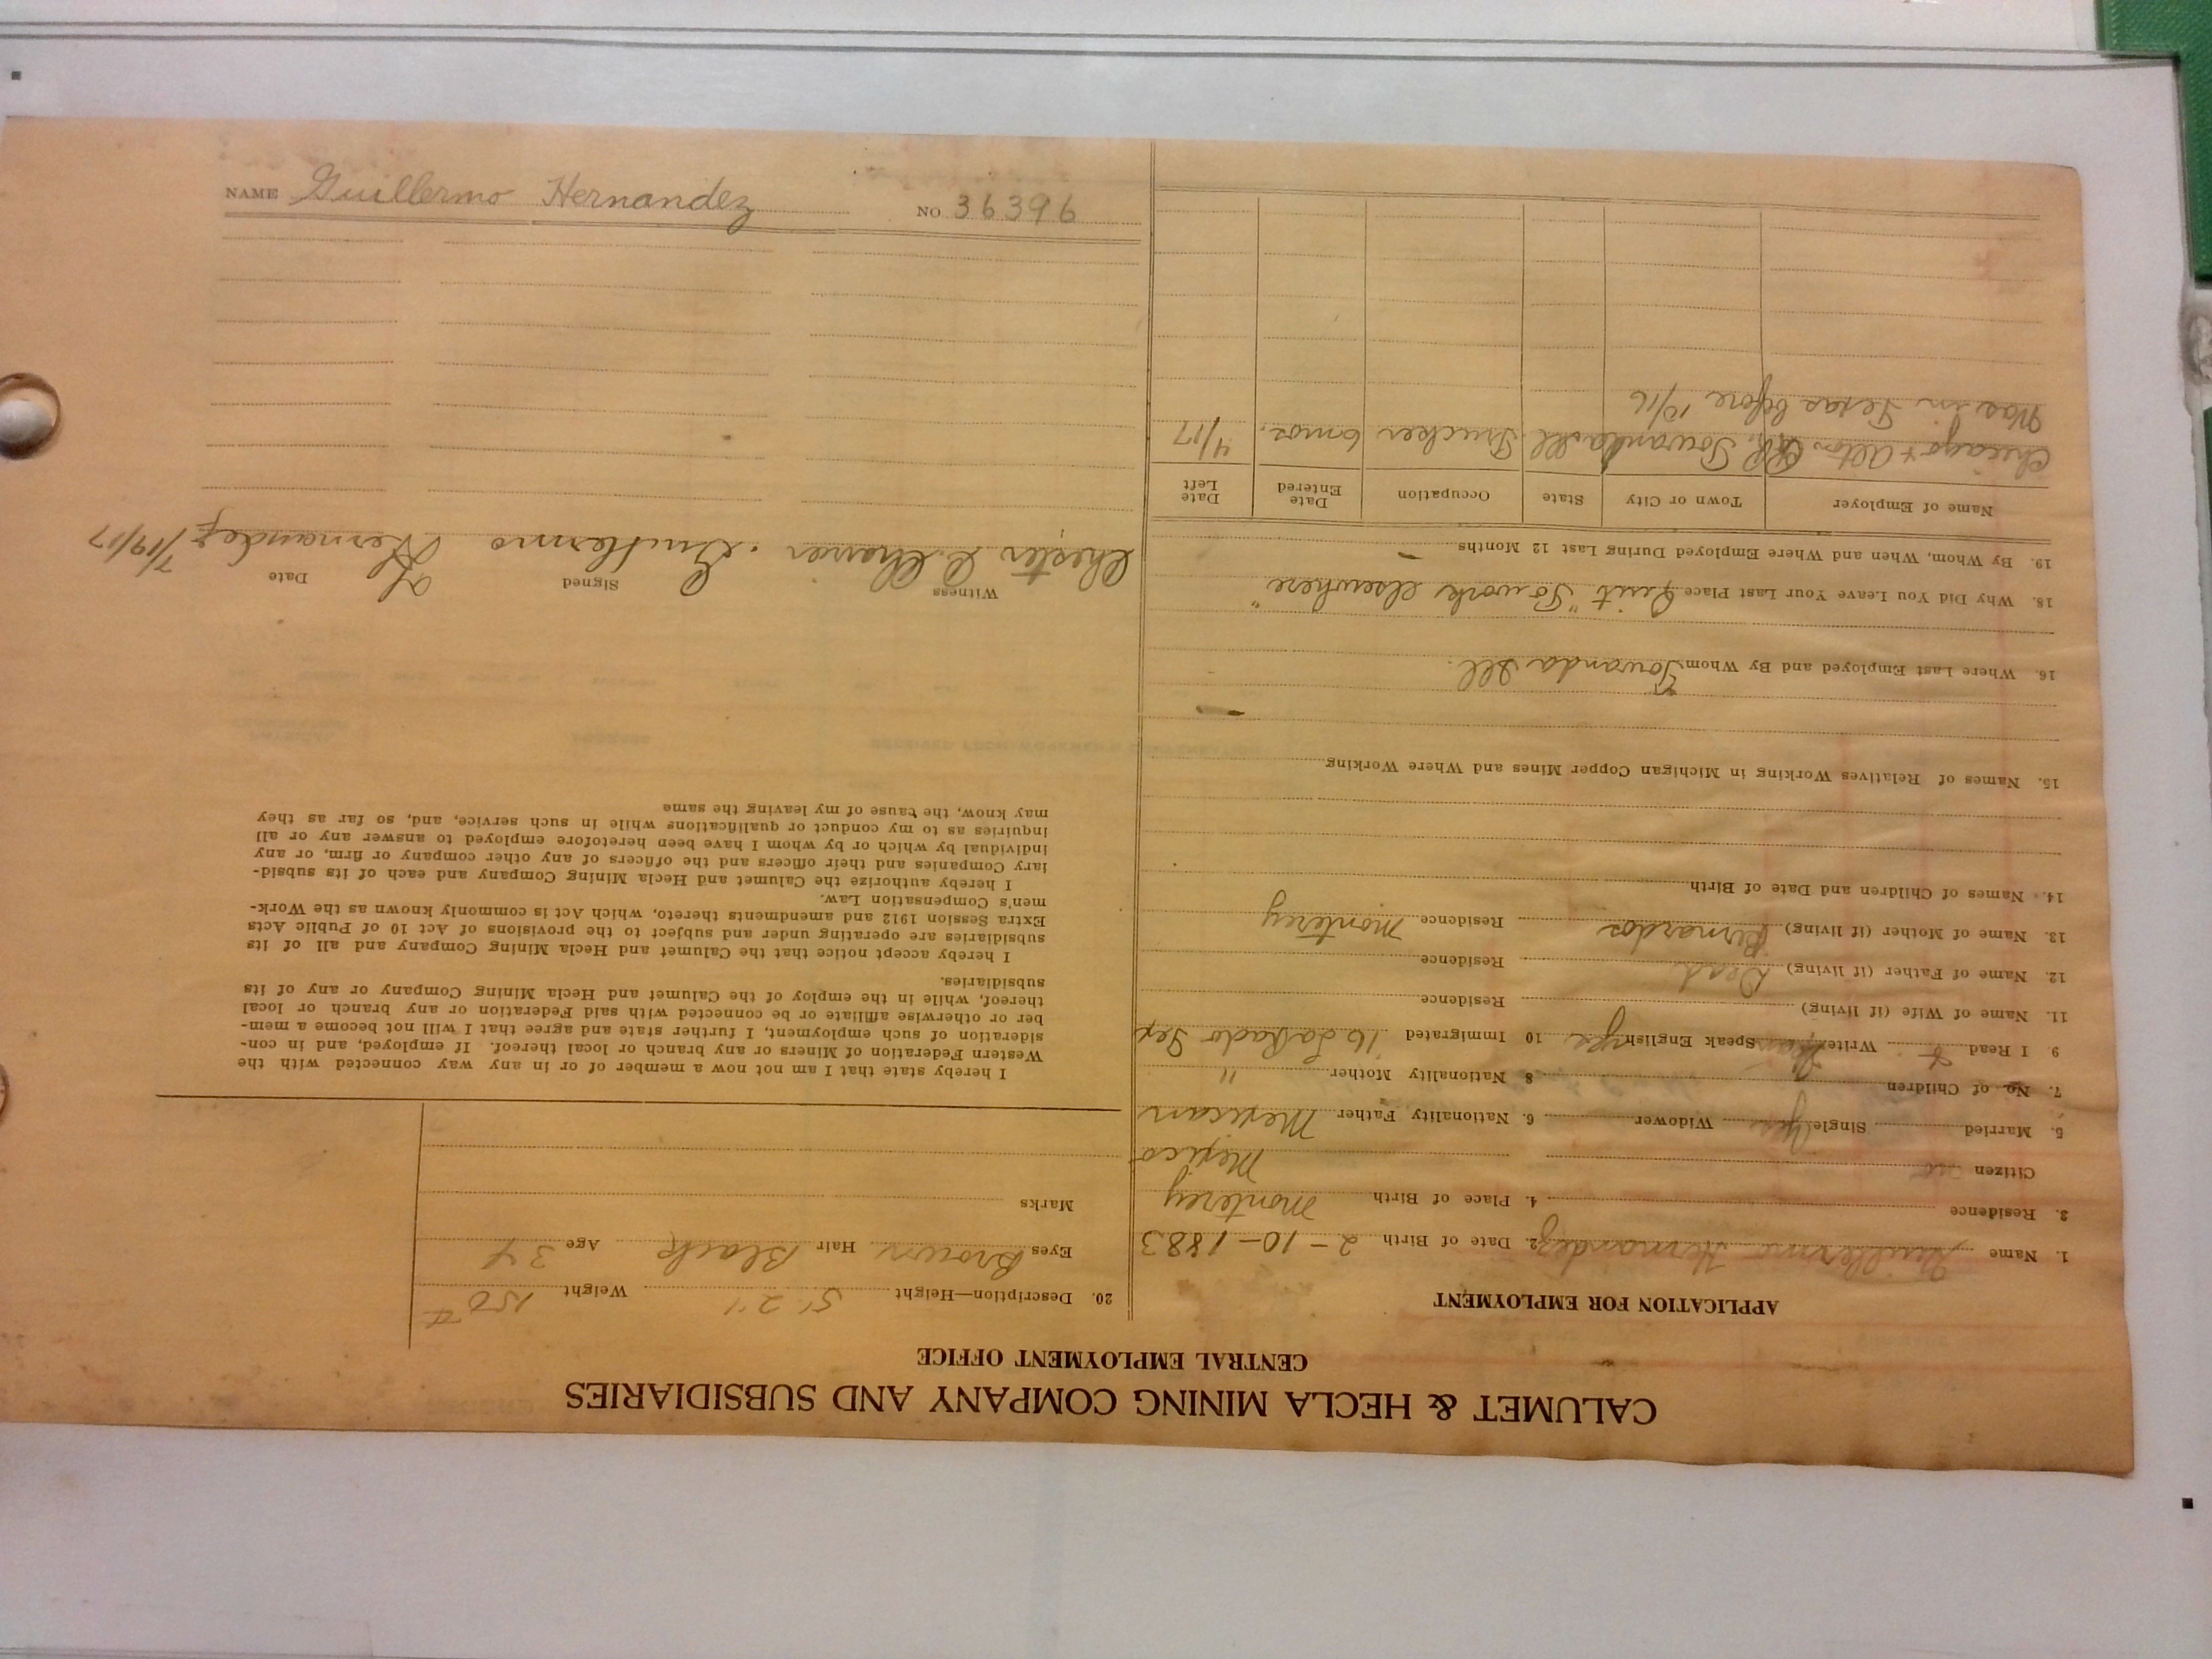 CALUMET & HECLA MINING COMPANY AND SUBSIDIARIES
CENTRAL EMPLOYMENT OFFICE
APPLICATION FOR EMPLOYMENT
1. Name Guillermo Hernandez 2. Date of Birth 2-10-1883
3. Residence 4. Place of Birth Monterey
Citizen no Mexico
5. Married Single Yes Widower 6. Nationality Father Mexican
7. No. of Children 8 Nationality Mother "
9 I Read Write Speak English 10 Immigrated '16 LaRado Tex
11. Name of Wife (if living) Residence
12. Name of Father (if living) Dead Residence
13. Name of Mother (if living) Bernardos Residence Monterey
14. Names of Children and Date of Birth
15. Names of Relatives Working in Michigan Copper Mines and Where Working
16. Where Last Employed and By Whom Towanda Ill.
18. Why Did You Leave Your Last Place Quit "To work elsewhere"
19. By Whom, When and Where Employed During Last 12 Months
Name of Employer Town or City State Occupation Date Entered Date Left
Chicago + Alton RR. Towanda Ill Trucker 6 mos. 4/17
Was in Texas before 10/16
20. Description—Height 5' 2" Weight 150#
Eyes Brown Hair Black Age 34
Marks
I hereby state that I am not now a member of or in any way connected with the
Western Federation of Miners or any branch or local thereof. If employed, and in con-
sideration of such employment, I further state and agree that I will not become a mem-
ber or otherwise affiliate or be connected with said Federation or any branch or local
thereof, while in the employ of the Calumet and Hecla Mining Company or any of its
subsidiaries.
I hereby accept notice that the Calumet and Hecla Mining Company and all of its
subsidiaries are operating under and subject to the provisions of Act 10 of Public Acts
Extra Session 1912 and amendments thereto, which Act is commonly known as the Work-
men's Compensation Law.
I hereby authorize the Calumet and Hecla Mining Company and each of its subsid-
iary Companies and their officers and the officers of any other company or firm, or any
individual by which or by whom I have been heretofore employed to answer any or all
inquiries as to my conduct or qualifications while in such service, and, so far as they
may know, the cause of my leaving the same
Witness Signed Date
Chester Guillermo Hernandez 7/19/17
NAME Guillermo Hernandez NO 36396